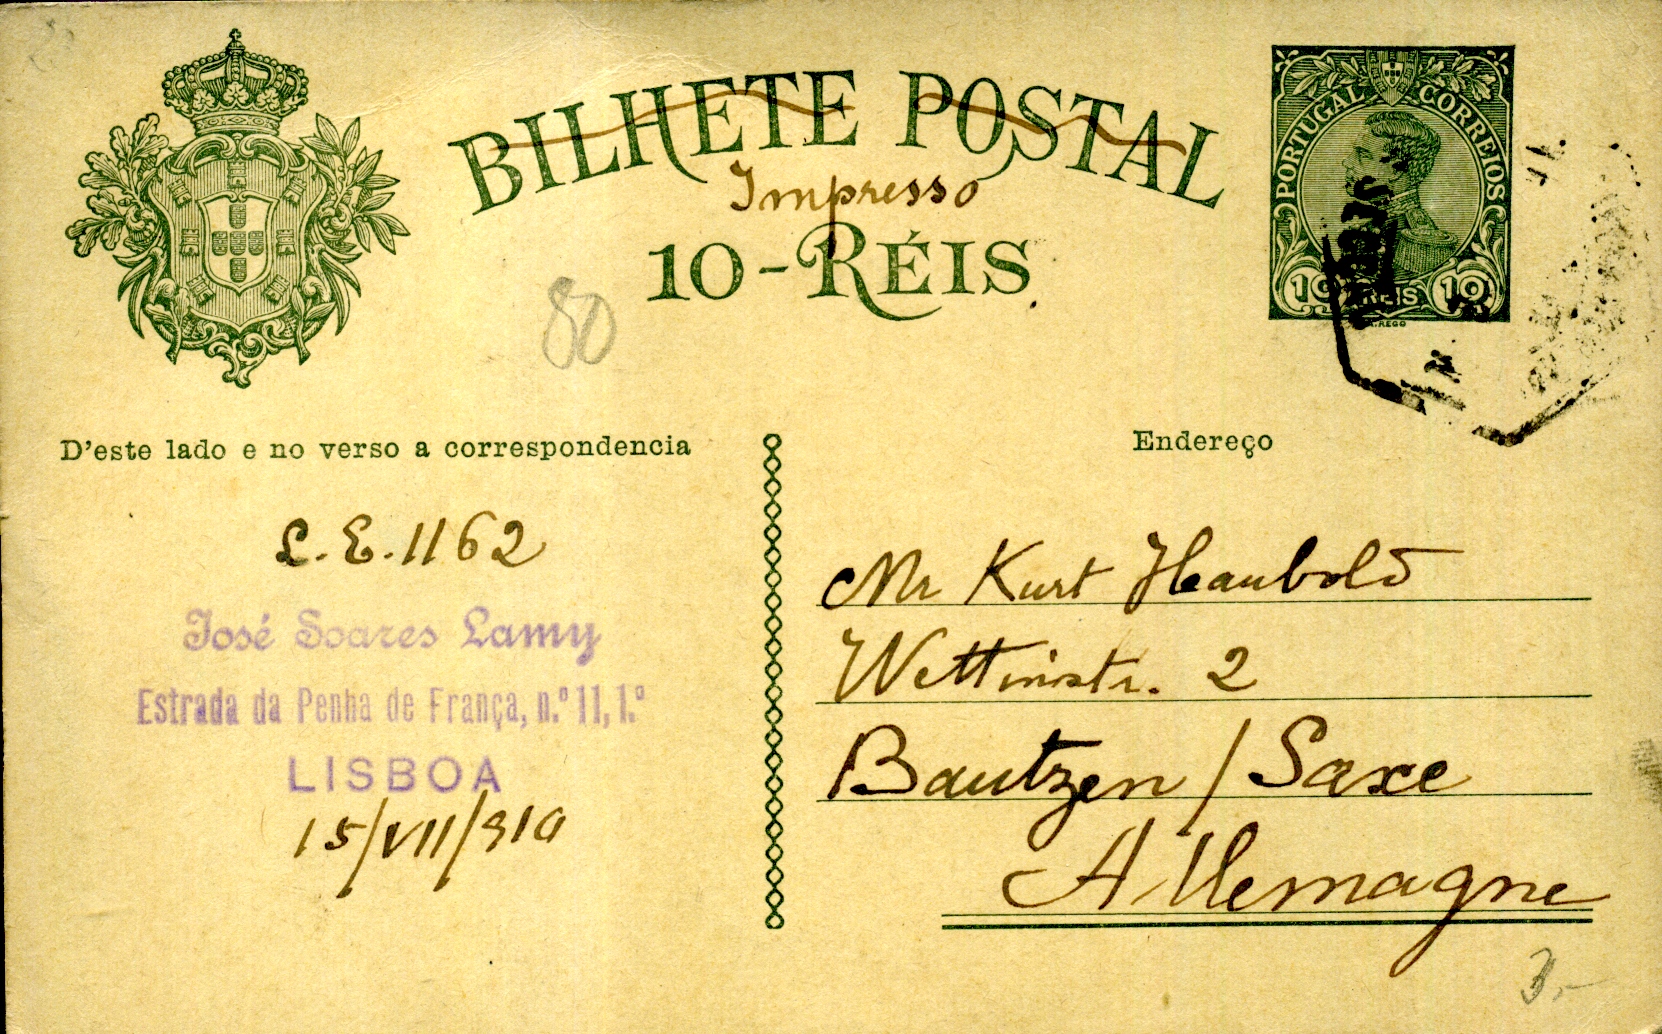 BILHETE POSTAL
Impresso
10-RÉIS
PORTUGAL CORREIOS
10 REIS 10
80
D'este lado e no verso a correspondencia
Endereço
L. E. 1162
José Soares Lamy
Estrada da Penha de França, n.º 11, 1.º
LISBOA
15/VII/910
Mr Kurt Haubold
Wettinstr. 2
Bautzen / Saxe
Allemagne
3,-